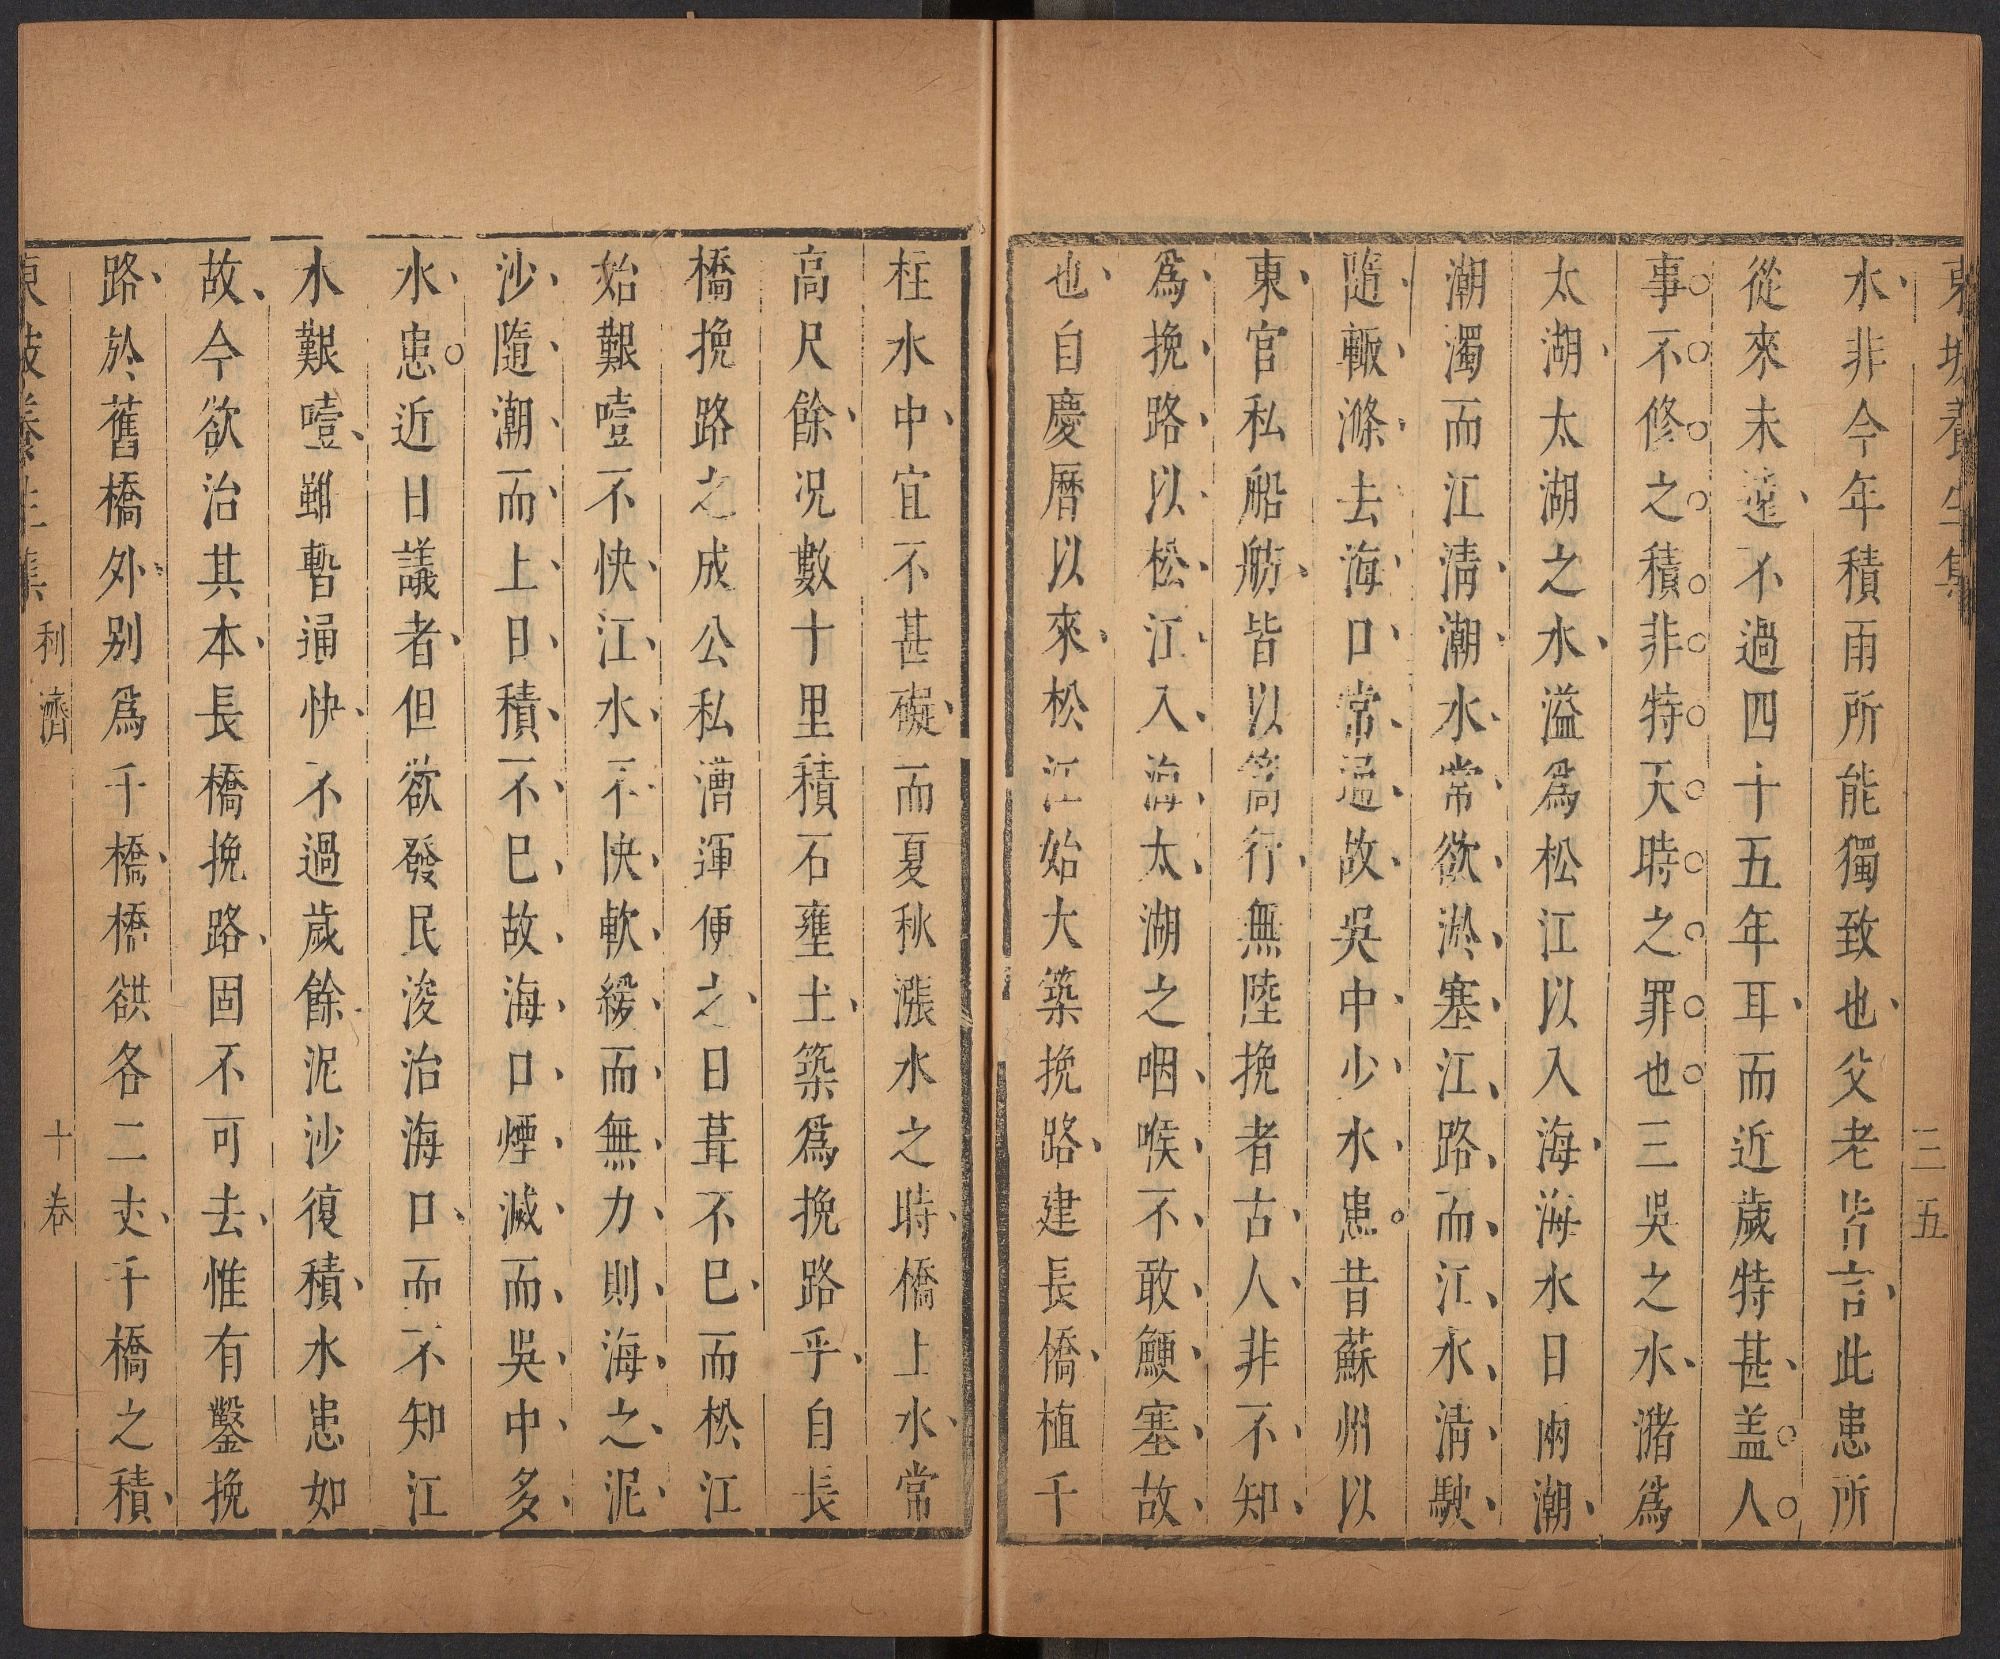 東坡養生集 三五
水非今年積雨所能獨致也父老皆言此患所
從來未遠不過四十五年耳而近歲特甚蓋人
事不修之積非特天時之罪也三吳之水瀦爲
太湖太湖之水溢爲松江以入海海水日兩潮
潮濁而江清潮水常欲淤塞江路而江水清駛
隨輙滌去海口常通故吳中少水患昔蘇州以
東官私船舫皆以篙行無陸挽者古人非不知
爲挽路以松江入海太湖之咽喉不敢鯁塞故
也自慶曆以來松江始大築挽路建長橋植千
柱水中宜不甚礙而夏秋漲水之時橋上水常
高尺餘况數十里積石壅土築爲挽路乎自長
橋挽路之成公私漕運便之日葺不已而松江
始艱噎不快江水不快軟緩而無力則海之泥
沙隨潮而上日積不已故海口煙滅而吳中多
水患近日議者但欲發民浚治海口而不知江
水艱噎雖暫通快不過歲餘泥沙復積水患如
故今欲治其本長橋挽路固不可去惟有鑿挽
路於舊橋外別爲千橋橋谼各二丈千橋之積
東坡養生集 利濟 十卷